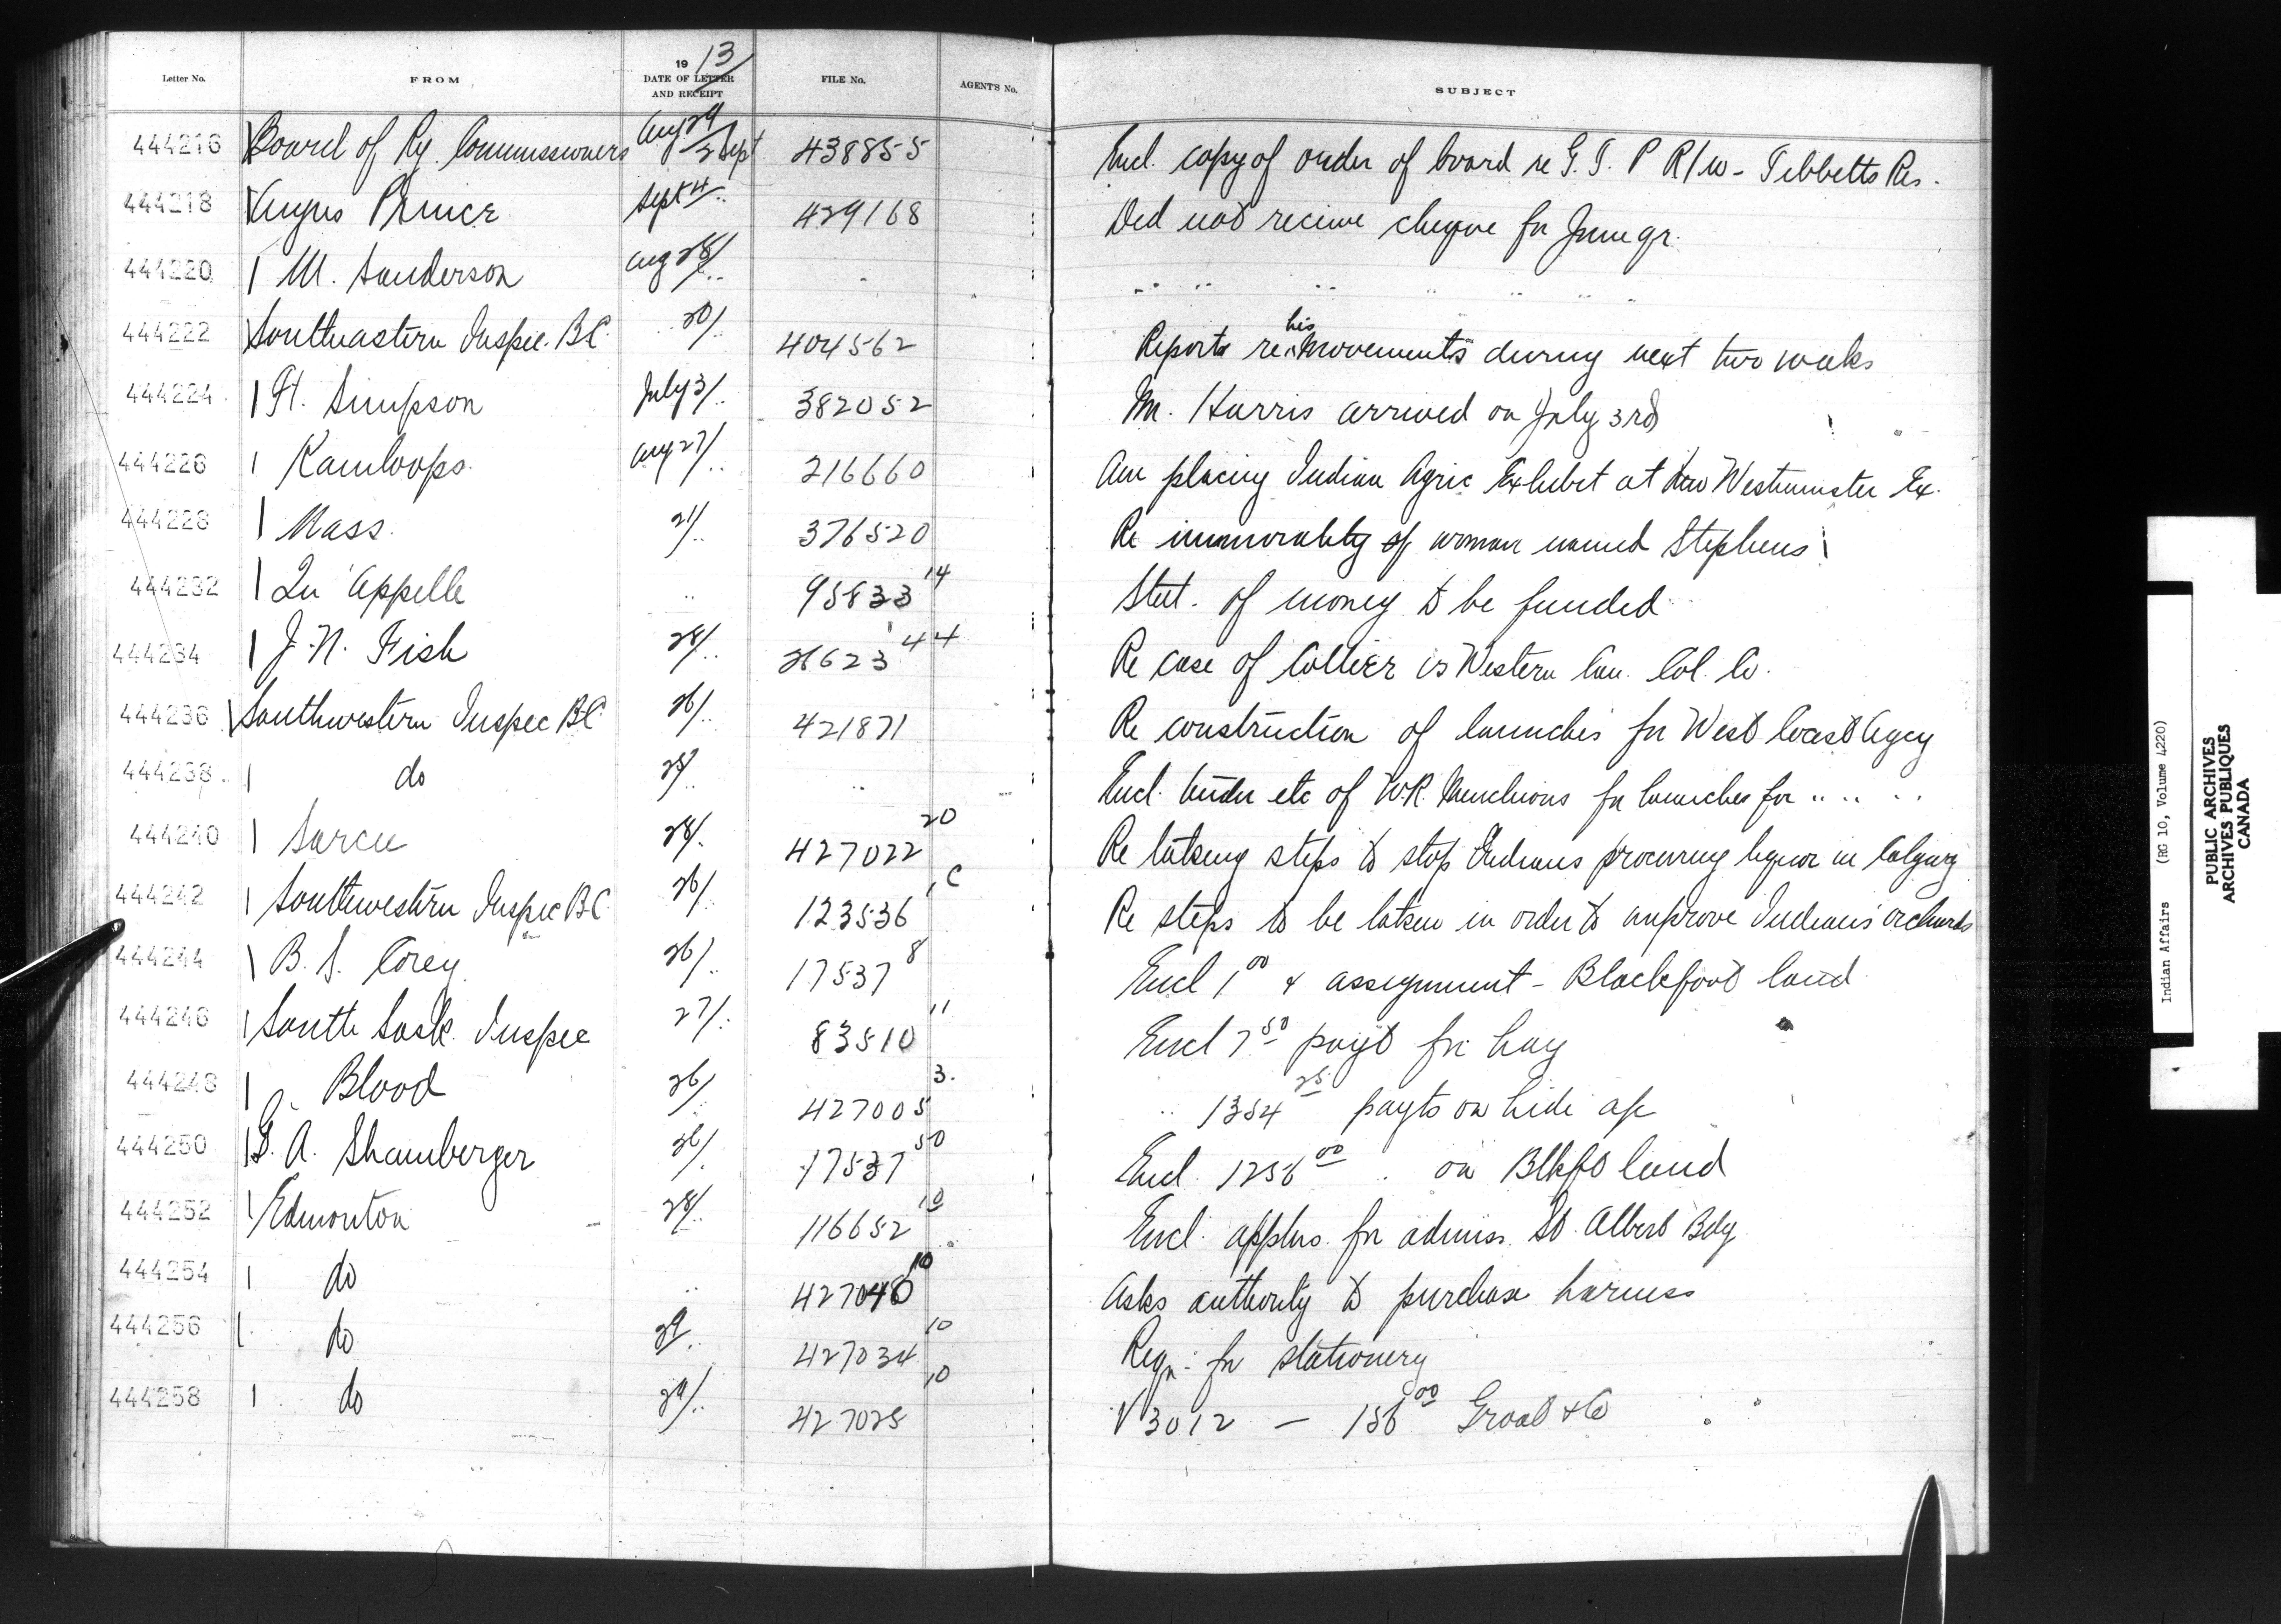 Letter No. FROM 1913 DATE OF LETTER AND RECEIPT FILE No. AGENT'S No. SUBJECT
444216 Board of Ry. Commissioners Aug 29/2 Sept 438855 Encl. copy of order of board re G.T.P R/W - Tibbetts Res.
444218 Angus Prince Sept 4 429168 Did not receive cheque for June qr.
444220 M. Sanderson Aug 28/ " " " " " " " "
444222 Southeastern Inspec. B.C. 30/ 404562 Reports re his movements during next two weeks
444224 Ft. Simpson July 3/ 382052 M. Harris arrived on July 3rd
444226 Kamloops Aug 27/ 216660 Am placing Indian Agric Exhibit at New Westminster Ex.
444228 Nass 21/ 376520 Re immorality of woman named Stephens
444232 Qu'Appelle " 95833 14 Stat. of money to be funded
444234 J. N. Fish 28/ 26623 44 Re case of Collier vs Western Can. Col. Co.
444236 Southwestern Inspec B.C. 26/ 421871 Re construction of launches for West Coast Agcy
444238 do 25/ " Encl. tender etc of W.R. Menchions for launches for " " "
444240 Sarcee 28/ 427022 20 Re taking steps to stop Indians procuring liquor in Calgary
444242 Southwestern Inspec B.C. 26/ 123536 C Re steps to be taken in order to improve Indians' orchards
444244 B. S. Corey 26/ 17537 8 Encl 1 00 & assignment - Blackfoot land
444246 South Sask. Inspec 27/ 83510 11 Encl 7 50 payt for hay
444248 Blood 26/ 427005 3. " 1354 25 payts on hide a/c
444250 G. A. Shamberger 26/ 17537 50 Encl. 1256 00 " on Blkft land
444252 Edmonton 28/ 116652 10 Encl. applns. for admiss. St. Albert Bdg
444254 do " 427040 10 Asks authority to purchase harness
444256 do 29 427034 10 Reqn. for stationery
444258 do 29/ 427025 10 V 3012 — 156 00 Groat & Co
Indian Affairs (RG 10, Volume 4220)
PUBLIC ARCHIVES
ARCHIVES PUBLIQUES
CANADA